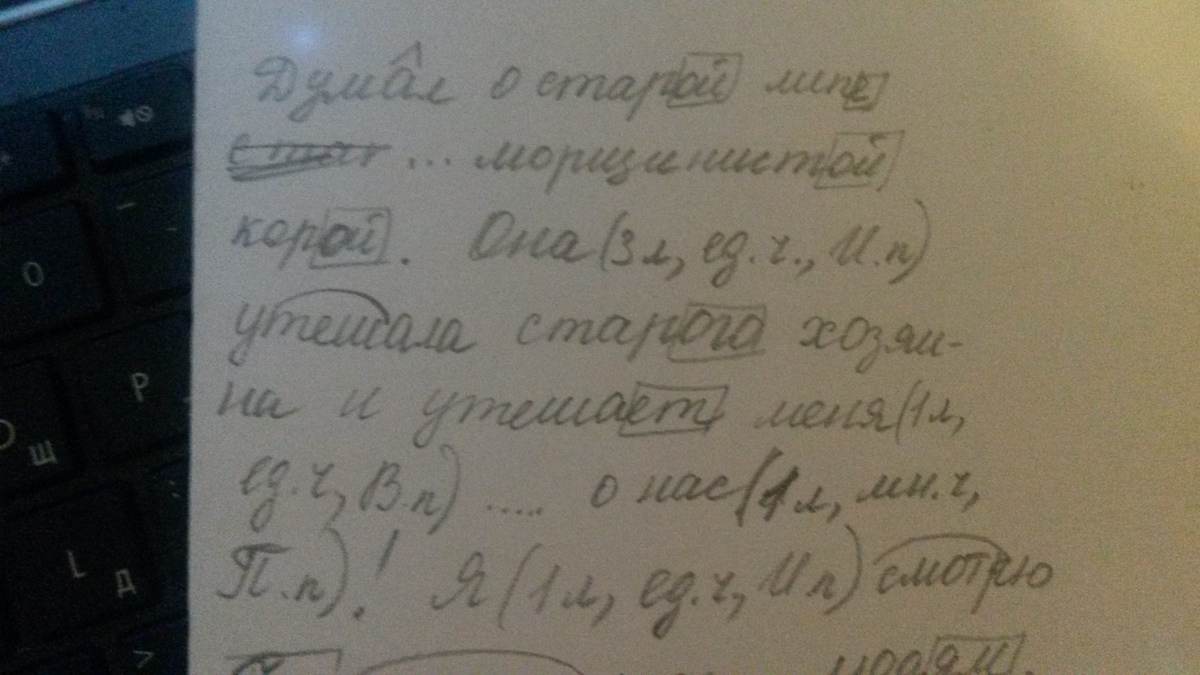 Думал о старой липе
... морщинистой
корой. Она (3 л, ед.ч., И.п)
утешала старого хозяи-
на и утешает меня (1 л,
ед.ч, В.п) ..... о нас (1 л, мн.ч,
П.п)! Я (1 л, ед.ч, И.п) смотрю
О
Р
Щ
L
Д